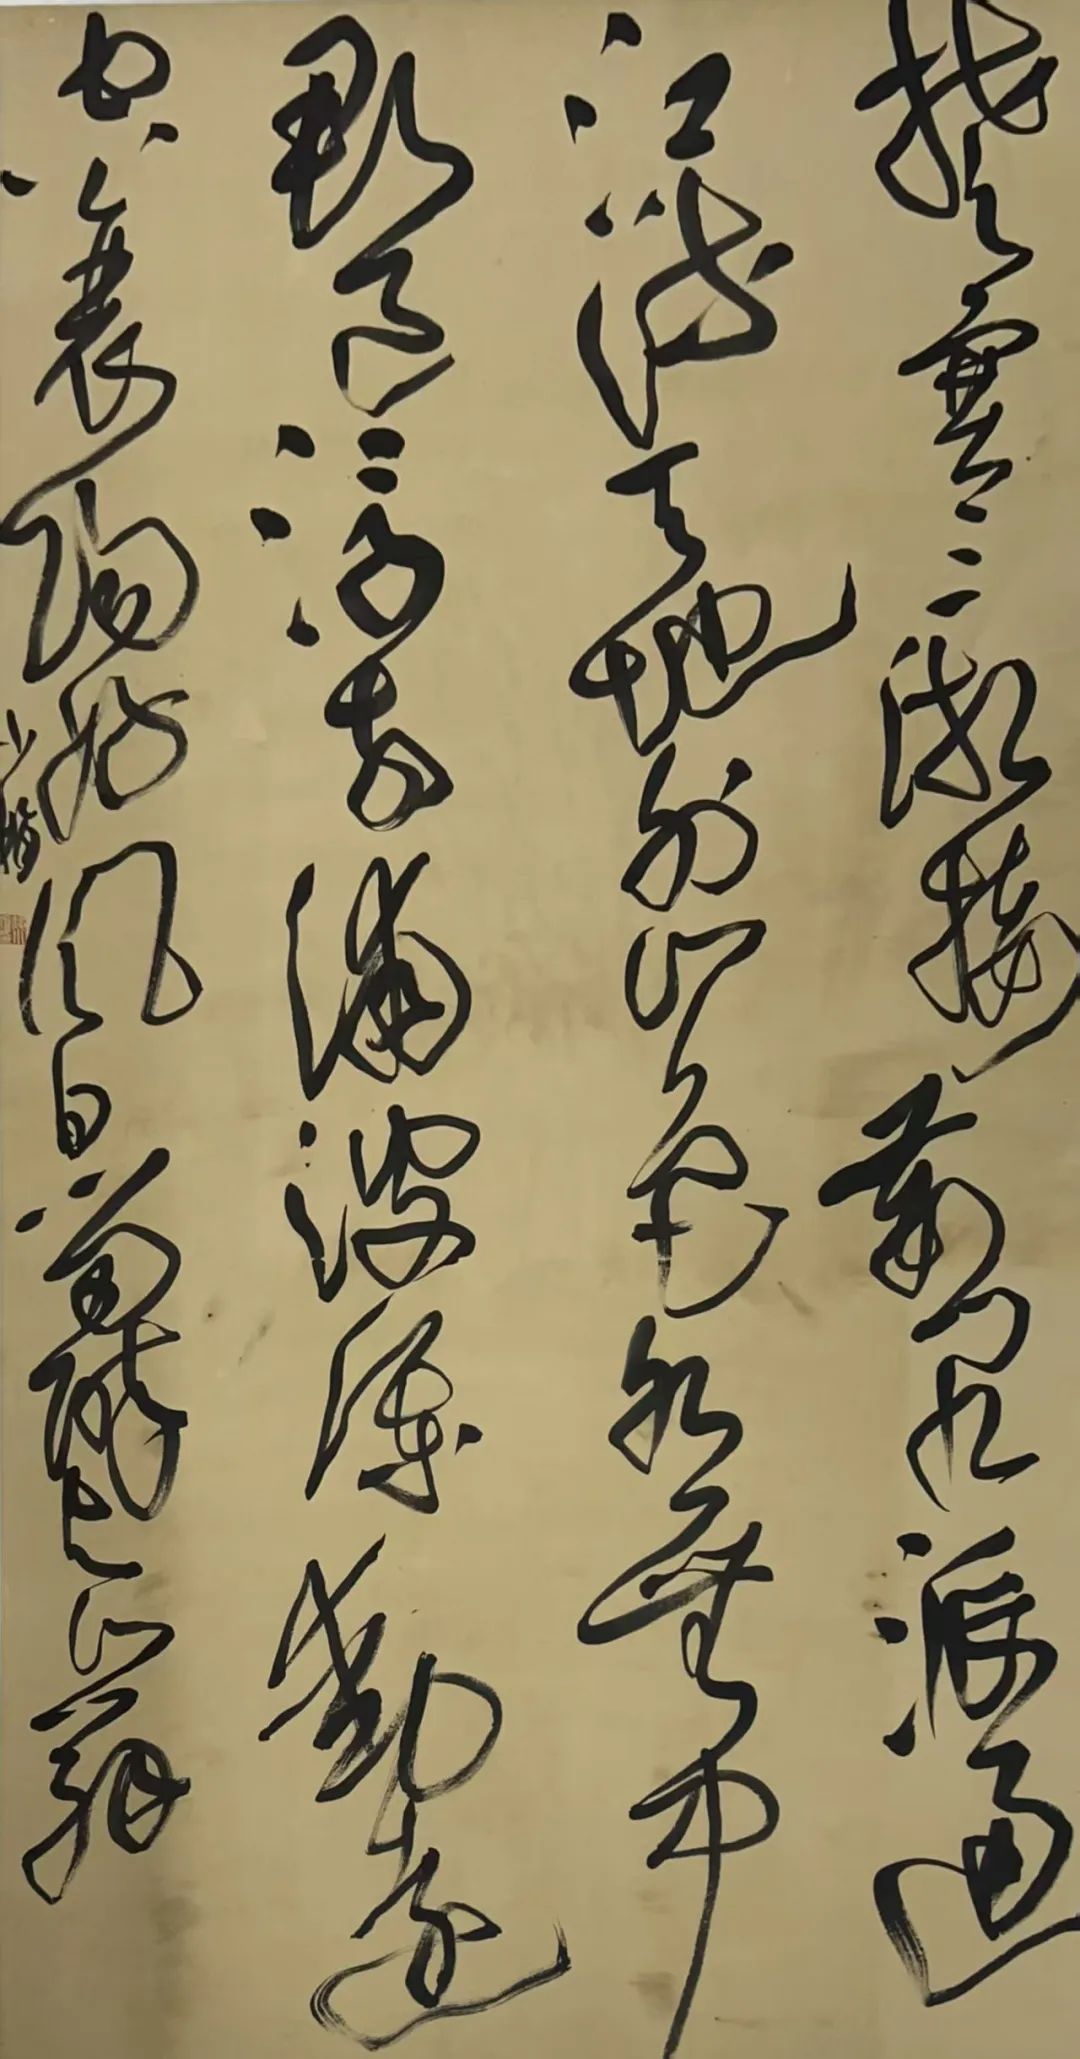 楚塞三湘接荊門九派通
江流天地外山色有無中
郡邑浮前浦波瀾動遠
空襄陽好風日留醉與山翁